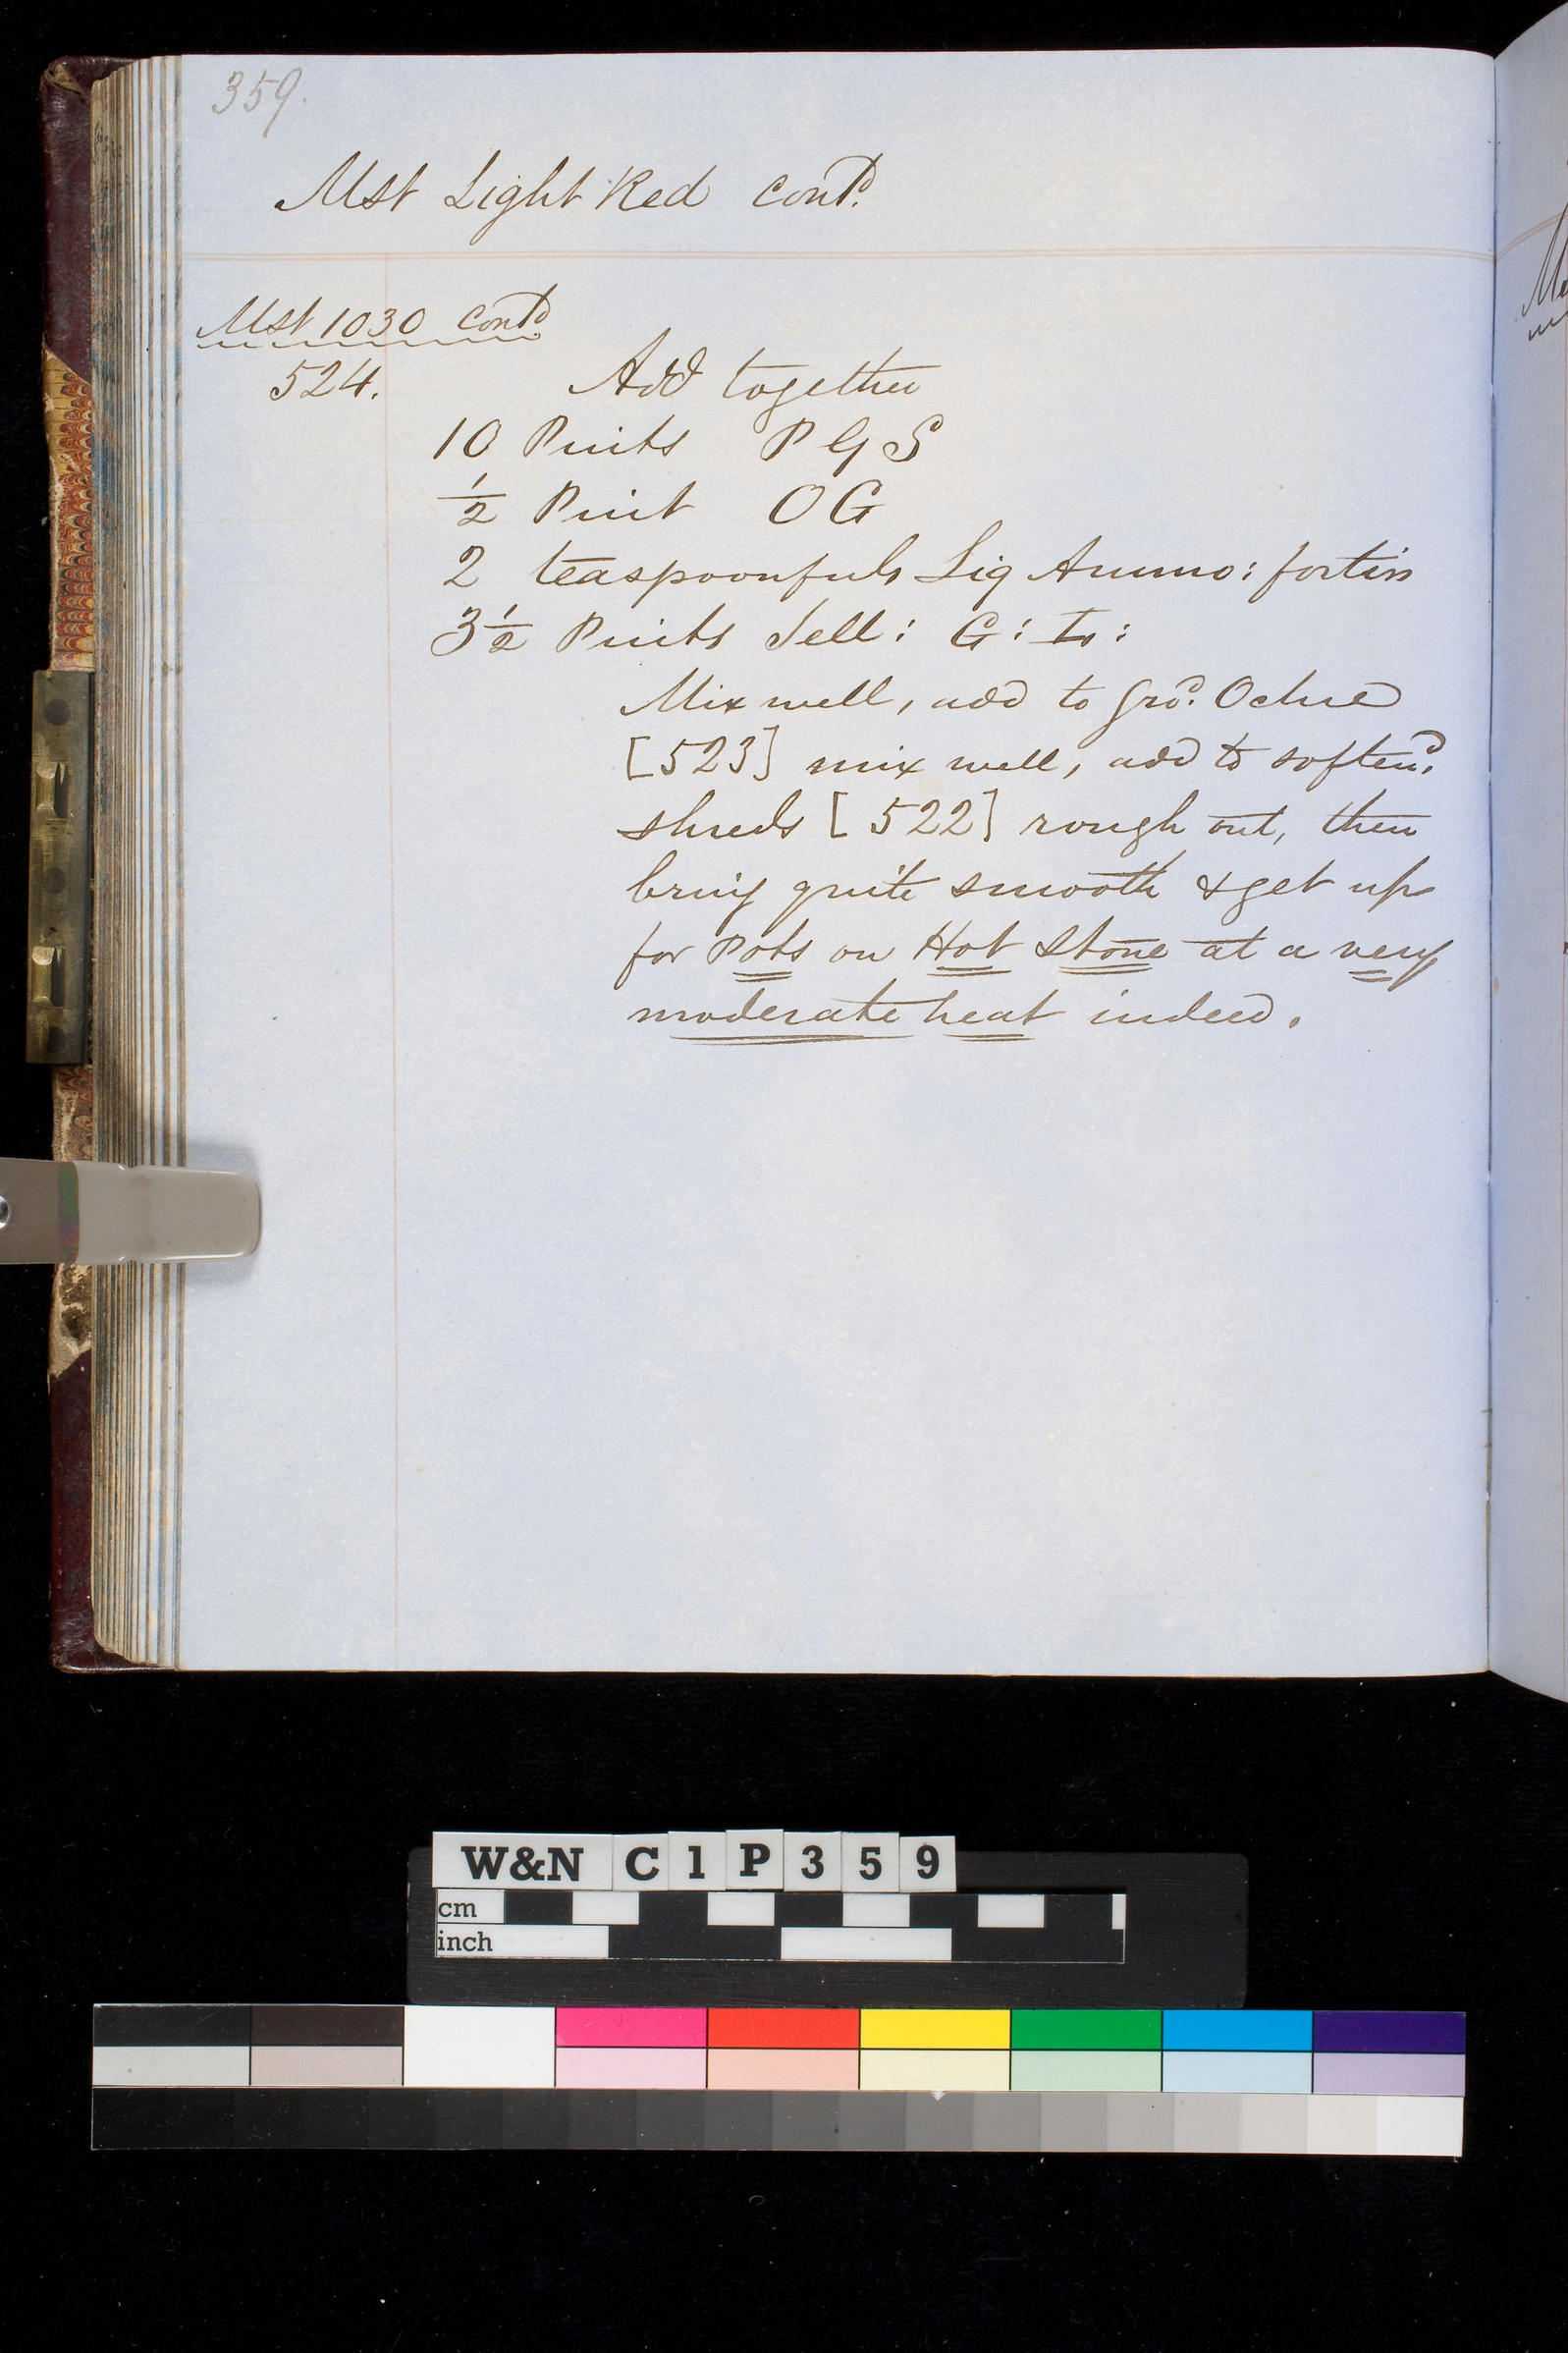 359.
Mst Light Red Contd.
Mst 1030 Contd.
524.
Add together
10 Pints P G S
½ Pint O G
2 teaspoonfuls Liq Ammo: fortiss
3½ Pints Jell: G: To:
Mix well, add to grd. Ochre
[523] mix well, add to softend.
shreds [522] rough out, then
bring quite smooth & get up
for Pots on Hot Stone at a very
moderate heat indeed.
W&N C 1 P 3 5 9
cm
inch